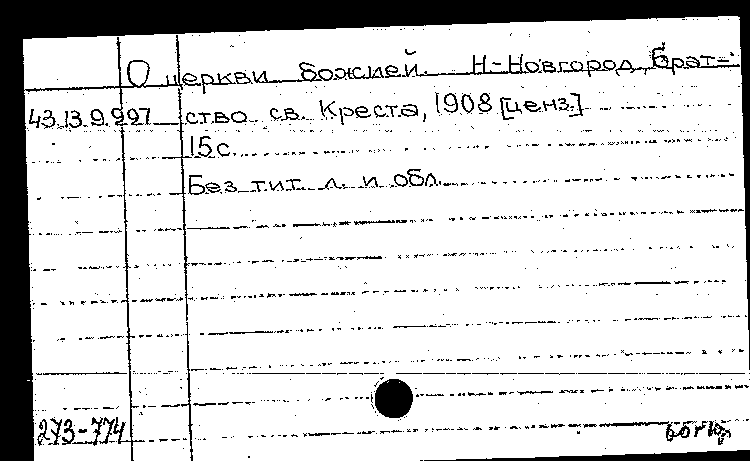 О церкви божией. Н-Новгород, Брат-
43.13.9.997 ство св. Креста, 1908 [ценз.]
15с.
Без тит. л. и обл.
273-774